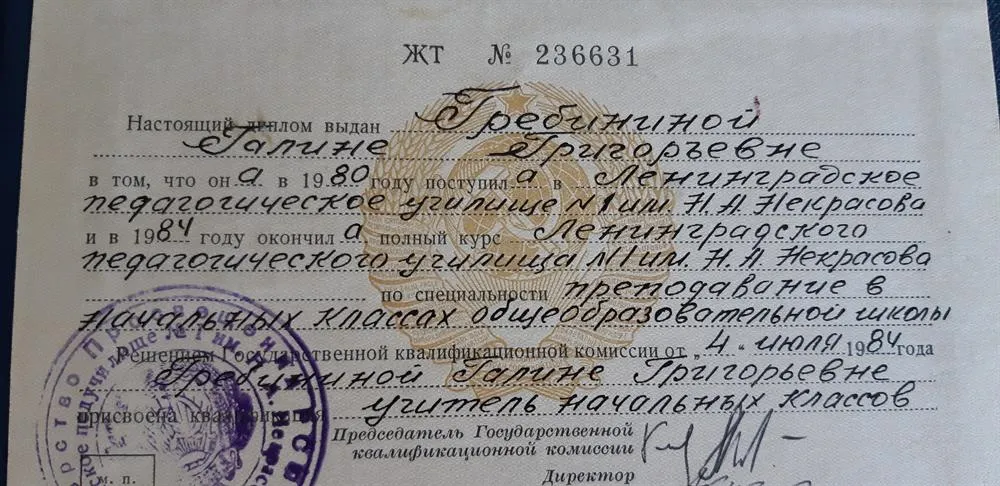 ЖТ № 236631
Настоящий диплом выдан Гребининой
Галине Григорьевне
в том, что она в 1980 году поступила в Ленинградское
педагогическое училище №1 им. Н. А. Некрасова
и в 1984 году окончила полный курс Ленинградского
педагогического училища №1 им. Н. А. Некрасова
по специальности преподавание в
начальных классах общеобразовательной школы
Решением Государственной квалификационной комиссии от „4" июля 1984 года
Гребининой Галине Григорьевне
присвоена квалификация учитель начальных классов
Председатель Государственной
квалификационной комиссии
Директор
м. п.